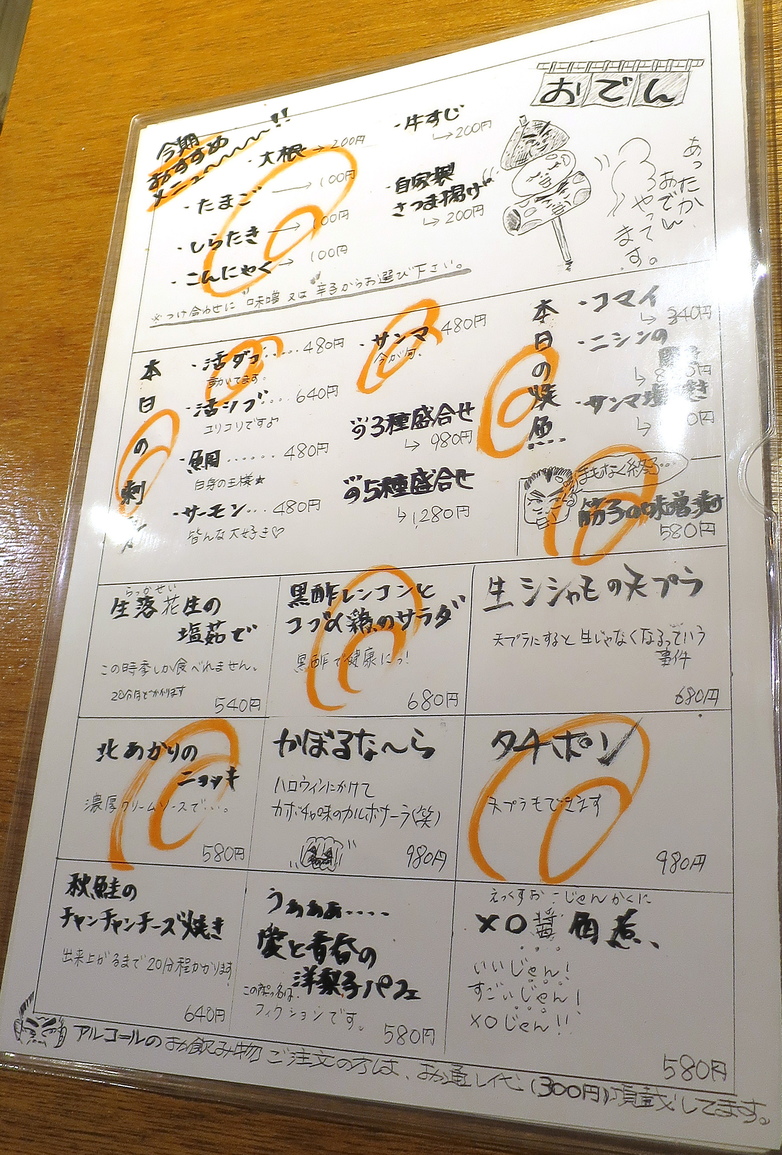 おでん
今期
おすすめ
メニュー!!
・大根→200円
・たまご→100円
・しらたき→100円
・こんにゃく→100円
・牛すじ
↳200円
・自家製
さつま揚げ
↳200円
あったかい
おでん
やって
ます。
※つけ合わせに"味噌"又は"辛子"からお選び下さい。
本日の刺
・活ダコ……480円
動いてます
・活シブ…640円
コリコリですよ
・鯛……480円
白身の王様★
・サーモン…480円
皆んな大好き♡
・サンマ 480円
今が旬。
3種盛合せ
↳980円
5種盛合せ
↳1,280円
本日の焼魚…
・コマイ
↳340円
・ニシンの
・サンマ塩焼き
まもなく終了…
筋子の味噌漬け
580円
らっかせい
生落花生の
塩茹で
この時季しか食べれません。
20分ほどかかります
540円
黒酢レンコンと
コブ〆鶏のサラダ
黒酢で健康にっ!
680円
生シシャモの天プラ
天プラにすると生じゃなくなるっていう
事件
680円
北あかりの
ニョッキ
濃厚クリームソースで…。
580円
かぼるな〜ら
ハロウィンにかけて
カボチャ味のカルボナーラ(笑)
980円
タチポン
天プラもできます
980円
秋鮭の
チャンチャンチーズ焼き
出来上がるまで20分程かかります
640円
うぁぁぁ‥‥
愛と青春の
洋梨子パフェ
フィクションです。
580円
えっくすおーじゃんかくに
XO醤角煮、
いいじゃん!
すごいじゃん!
XOじゃん!!
580円
アルコールのお飲み物ご注文の方は、お通し代(300円)頂戴してます。